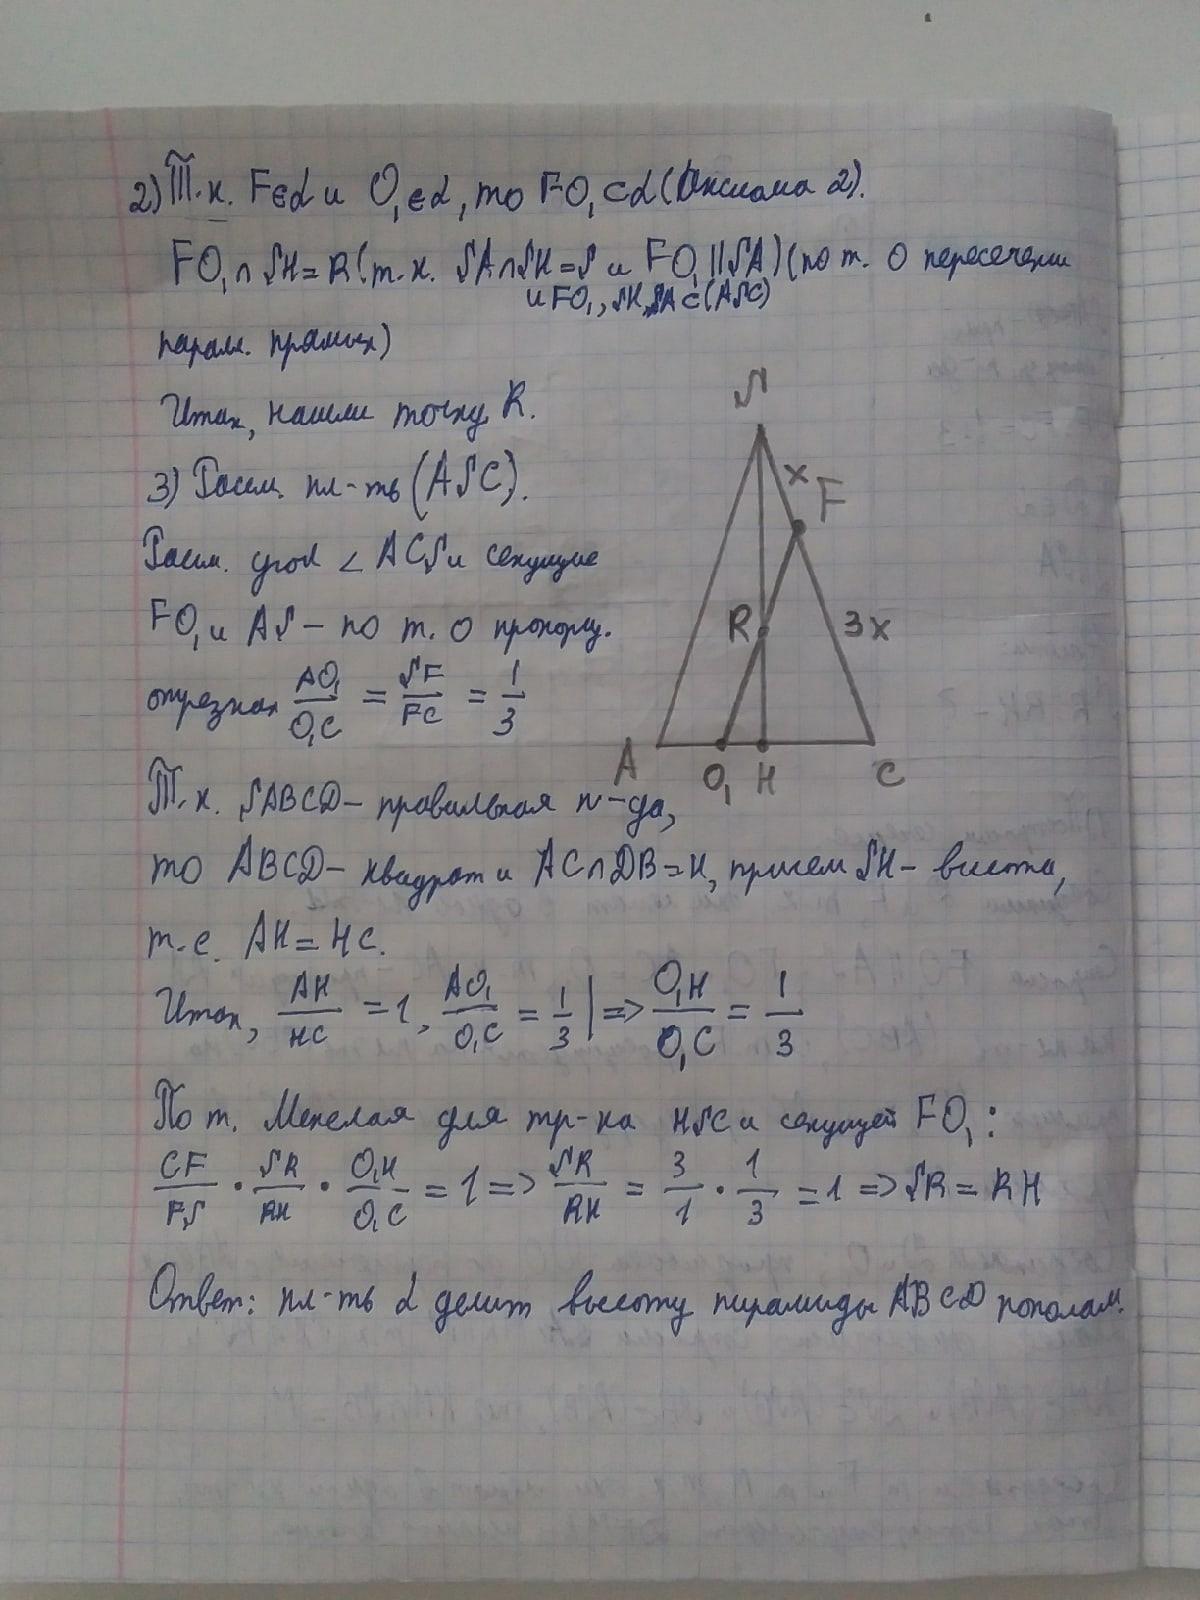 2) Т.к. F∈α и O₁∈α, то FO₁⊂α (Аксиома 2).
FO₁∩SH=R (т.к. SA∩SH=S и FO₁||SA) (по т. о пересечении
и FO₁, SH, SA⊂(ASC)
парал. прямых)
Итак, нашли точку R.
3) Рассм. пл-ть (ASC).
Рассм. угол ∠ACS и секущие
FO₁ и AS – по т. о пропорц.
отрезках AO₁/O₁C = SF/FC = 1/3
Т.к. SABCD – правильная п-да,
то ABCD – квадрат и AC∩DB=H, причем SH – высота,
т.е. AH=HC.
Итак, AH/HC = 1, AO₁/O₁C = 1/3 | => O₁H/O₁C = 1/3
По т. Менелая для тр-ка HSC и секущей FO₁:
CF/FS · SR/RH · O₁H/O₁C = 1 => SR/RH = 3/1 · 1/3 = 1 => SR = RH
Ответ: пл-ть α делит высоту пирамиды ABCD пополам.
S
x
F
R
3x
A
O₁
H
C